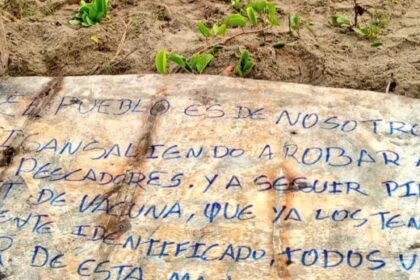 EL PUEBLO ES DE NOSOTRO
SAN SALIENDO A ROBAR
PESCADORES. YA SEGUIR PI
DE VACUNA, QUE YA LOS TEN
ENTE IDENTIFICADO, TODOS
DE ESTA